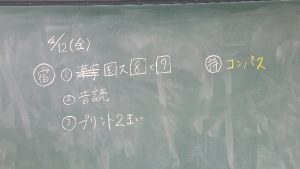 4/12(金)
宿 ① 国ス 8 と 9
② 音読
③ プリント2まい
持 コンパス